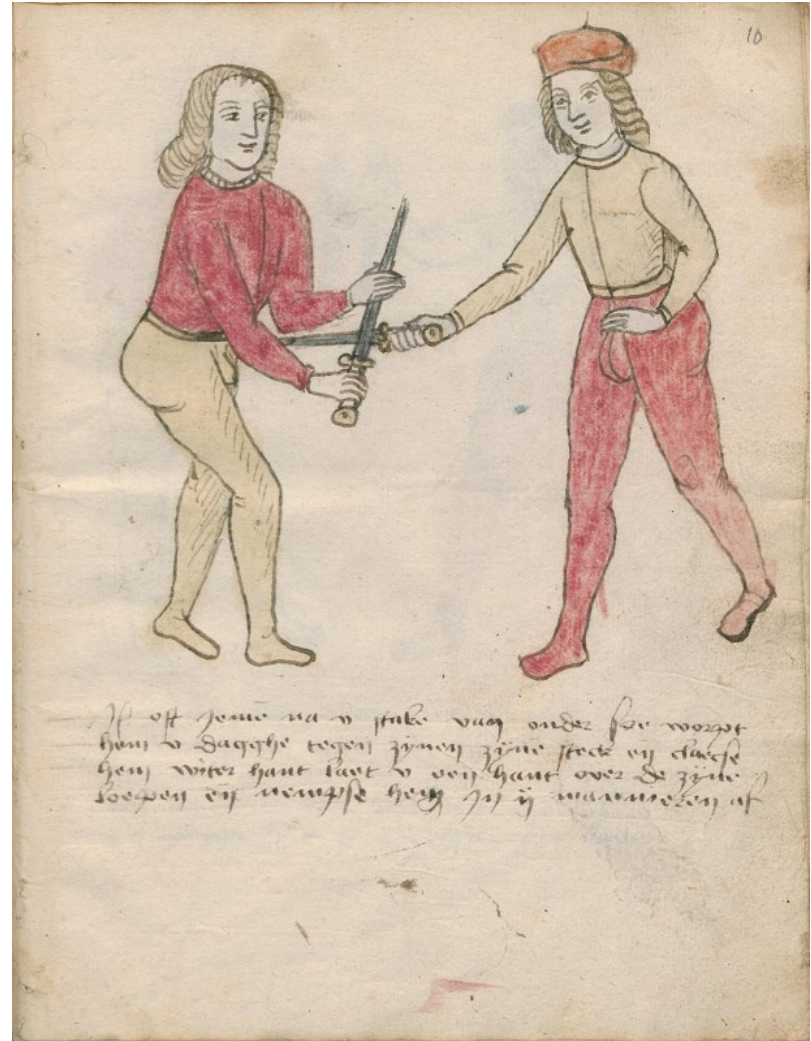 10
oft yeme na v stake van onder soe worpt
hem v dagghe tegen zynen zyne steck en
hem wter hant laet v een hant over de zyne
loepen en nempse hem In ij manmeren af